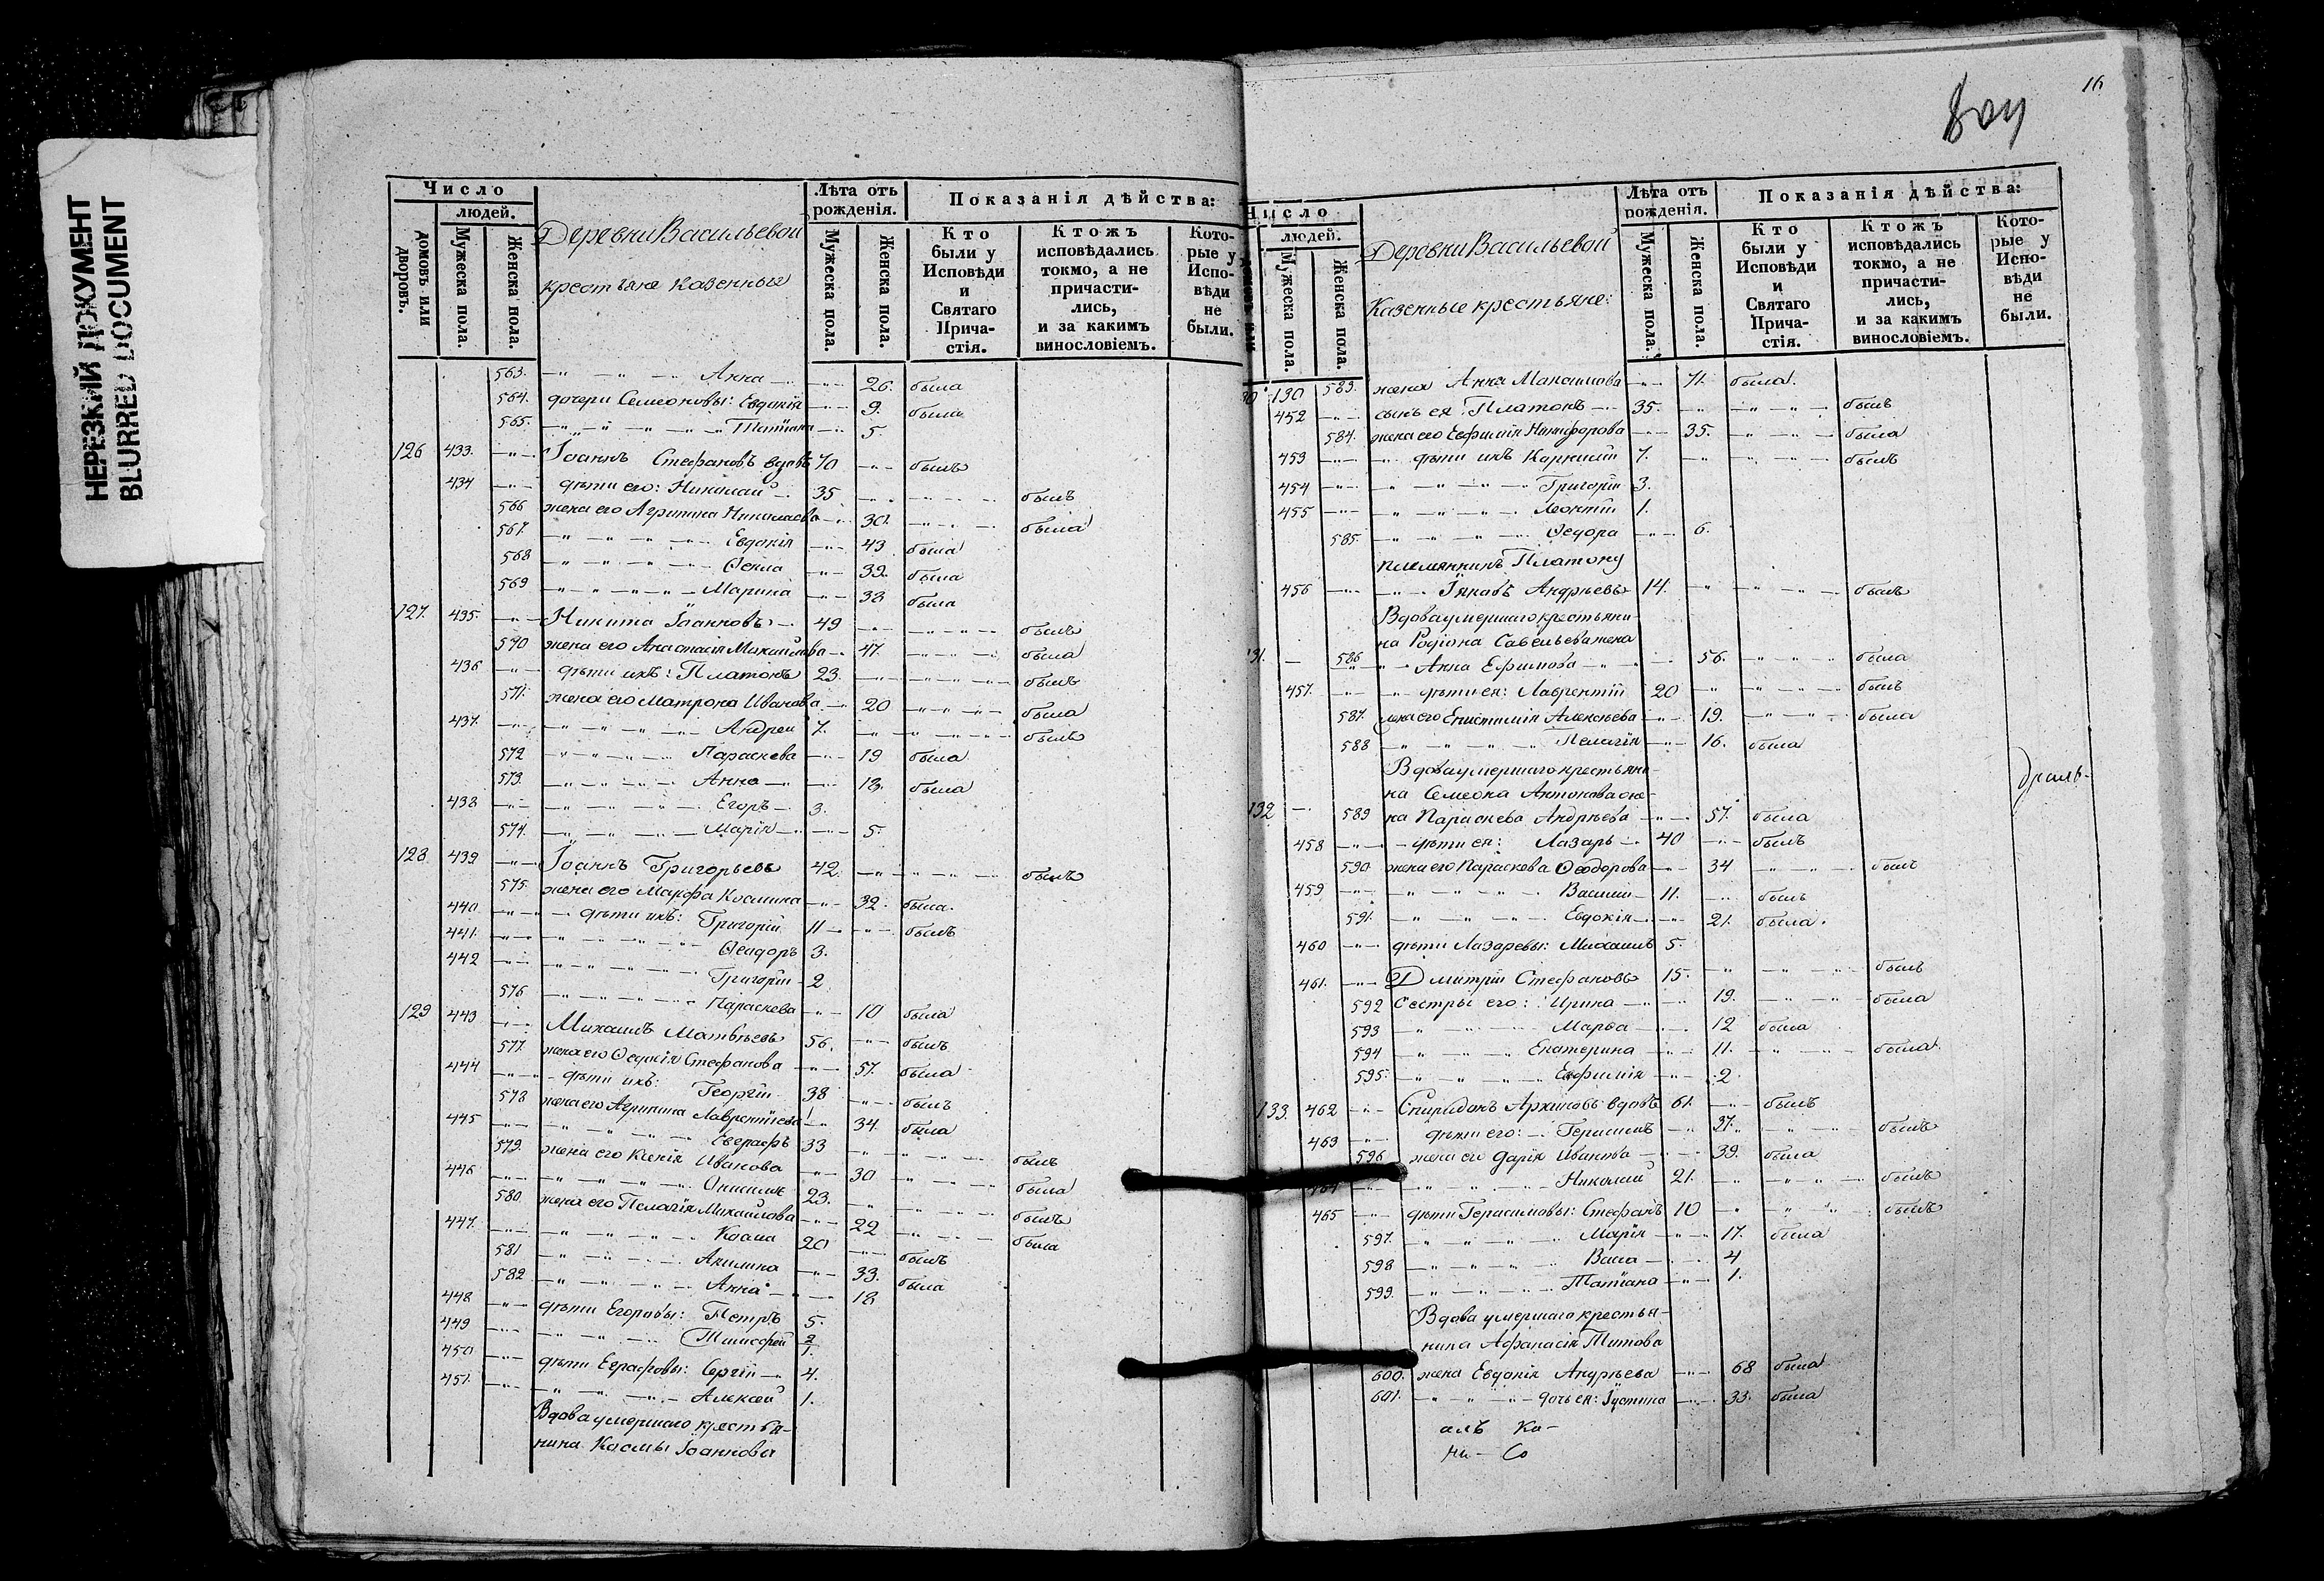 НЕРЕЗКИЙ ДОКУМЕНТ
BLURRED DOCUMENT
Число
людей.
домовъ или дворовъ.
Мужеска пола.
Женска пола.
Деревни Васильевой
крестьяне казенные
Лѣта отъ рожденія.
Мужеска пола.
Женска пола.
Показанія дѣйства:
Кто были у Исповѣди и Святаго Прича-стія.
Ктожъ исповѣдались токмо, а не причасти-лись, и за какимъ винословіемъ.
Кото-рые у Испо-вѣди не были.
563. Анна 26. была
564. дочери Семеоновы: Евдокія 9. была
565. Татіана 5.
126 433. Іоаннъ Стефановъ вдовъ 70 былъ
434 дѣти его: Николай 35 былъ
566 жена его Агрипина Николаева 30. была
567. Евдокія 43 была
568 Ѳекла 39. была
569 Марина 38 была
127. 435. Никита Іоанновъ 49 былъ
570 жена его Анастасія Михайлова 47. была
436 дѣти ихъ: Платонъ 23. былъ
571. жена его Матрона Иванова 20 была
437. Андрей 7. былъ
572 Параскева 19 была
573. Анна 18. была
438 Егоръ 3.
574. Марія 5.
128 439 Іоаннъ Григорьевъ 42. былъ
575. жена его Марфа Космина 32. была.
440 дѣти ихъ: Григорій 11 былъ
441. Ѳеодоръ 3.
442 Григорій 2
576 Параскева 10 была
129 443 Михаилъ Матвѣевъ 56. былъ
577. жена его Ѳеодосія Стефанова 57. была
444 дѣти ихъ: Георгій 38 былъ
578 жена его Агрипина Лаврентіева 34. была
445 Евграфъ 33 былъ
579. жена его Ксенія Иванова 30 была
446 Онисимъ 23. былъ
580. жена его Пелагія Михайлова 22 была
447. Косма 20 былъ
581 Акилина 33. была
582 Анна 18
448 дѣти Егоровы: Петръ 5.
449 Тимофей
450 дѣти Еграфовы: Сергій 4.
451. Алексей 1.
Вдова умершаго крестья-
нина Космы Іоаннова
16
Число
людей.
Мужеска пола.
Женска пола.
Деревни Васильевой
Казенные крестьяне:
Лѣта отъ рожденія.
Мужеска пола.
Женска пола.
Показанія дѣйства:
Кто были у Исповѣди и Святаго Прича-стія.
Ктожъ исповѣдались токмо, а не причасти-лись, и за какимъ винословіемъ.
Кото-рые у Испо-вѣди не были.
130 583. жена Анна Максимова 71. была.
452 сынъ ея: Платонъ 35. былъ
584. жена его Евфимія Никифорова 35. была
453 дѣти ихъ Корнилій 7. былъ
454 Григорій 3.
455 Леонтій 1.
585. Ѳедора 6.
племянникъ Платону
456 Іяковъ Андрѣевъ 14. былъ
Вдова умершаго крестьяни-
на Родіона Савельева жена
31. 586 Анна Ефимова 56. была
457. дѣти ея: Лаврентій 20 былъ
587. жена его Епистимія Алексѣева 19. была
588 Пелагія 16. была
Вдова умершаго крестьяни-
на Семеона Антонова же-
132 589 на Параскева Андрѣева 57. была
458 дѣти ея: Лазарь 40 былъ
590 жена его Параскева Ѳеодорова 34 была
459 Василій 11. былъ
591. Евдокія 21. была.
460 дѣти Лазаревы: Михаилъ 5.
461. Дмитрій Стефановъ 15. былъ
592 Сестры его: Ирина 19. была
593 Марѳа 12 была
594 Екатерина 11. была
595. Евфимія 2
133. 462 Спиридонъ Архиповъ вдовъ 61. былъ
463 дѣти его: Герасимъ 37. былъ
596 жена его Дарія Иванова 39. была
Николай 21. былъ
465 дѣти Герасимовы: Стефанъ 10 былъ
597. Марія 17. была
598 Васса 4
599. Татіана 1.
Вдова умершаго крестья-
нина Афанасія Титова
600. жена Евдокія Андрѣева 68 была
601. дочь ея: Іустина 33. была
алъ Ко-
ни- Со